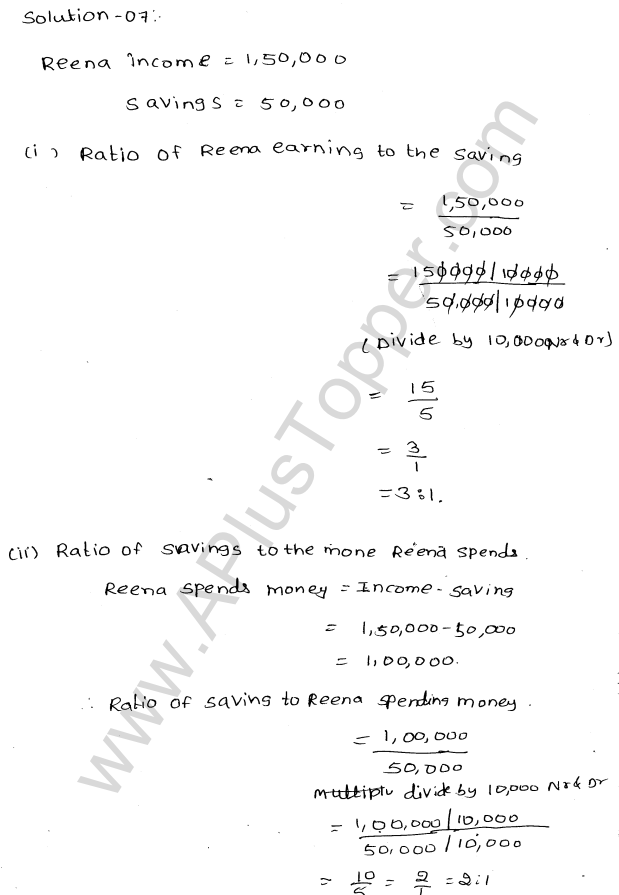 Solution-07:-
Reena income = 1,50,000
Savings = 50,000
(i) Ratio of Reena earning to the saving
= 1,50,000 / 50,000
= 150000/10000 / 50,000/10000
(Divide by 10,000 Nr & Dr)
= 15 / 5
= 3 / 1
= 3:1.
(ii) Ratio of savings to the mone Reena spends.
Reena spends money = Income - saving
= 1,50,000 - 50,000
= 1,00,000.
∴ Ratio of saving to Reena spending money.
= 1,00,000 / 50,000
divide by 10,000 Nr & Dr
= 1,00,000/10,000 / 50,000/10,000
= 10/5 = 2/1 = 2:1
www.APlusTopper.com